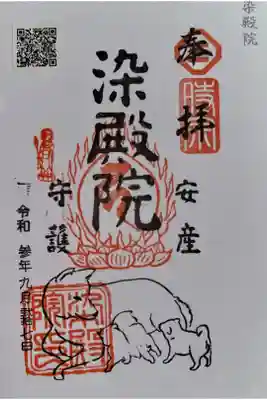 染殿院
奉拝
時宗
染殿院
安産
守護
令和 参年九月